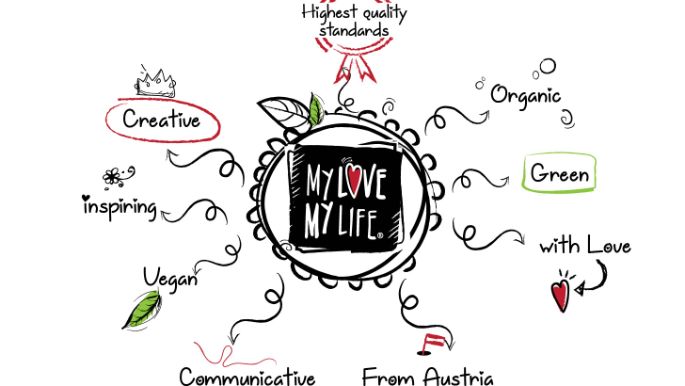 Highest quality
standards
Creative
Organic
Green
inspiring
MY LOVE
MY LIFE®
with Love
Vegan
Communicative
From Austria